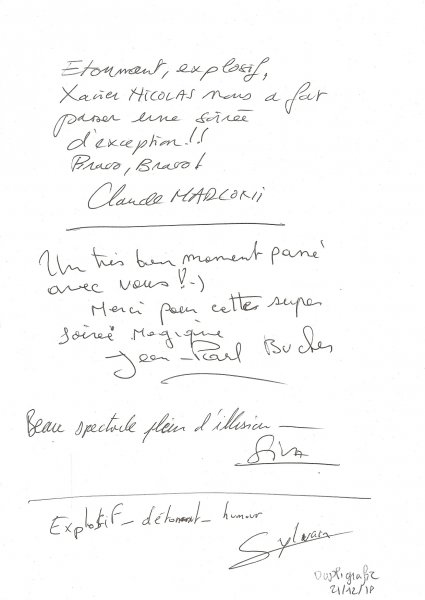 Etonnant, explosif,
Xavier NICOLAS nous a fait
passer une soirée
d'exception!!
Bravo, Bravo!
Claude
Un très bon moment passé
avec vous! :-)
Merci pour cette super
soirée Magique
Jean-Paul Bucher
Beau spectacle plein d'illusion
Explosif - détonant - humour
Sylvain
21/12/18